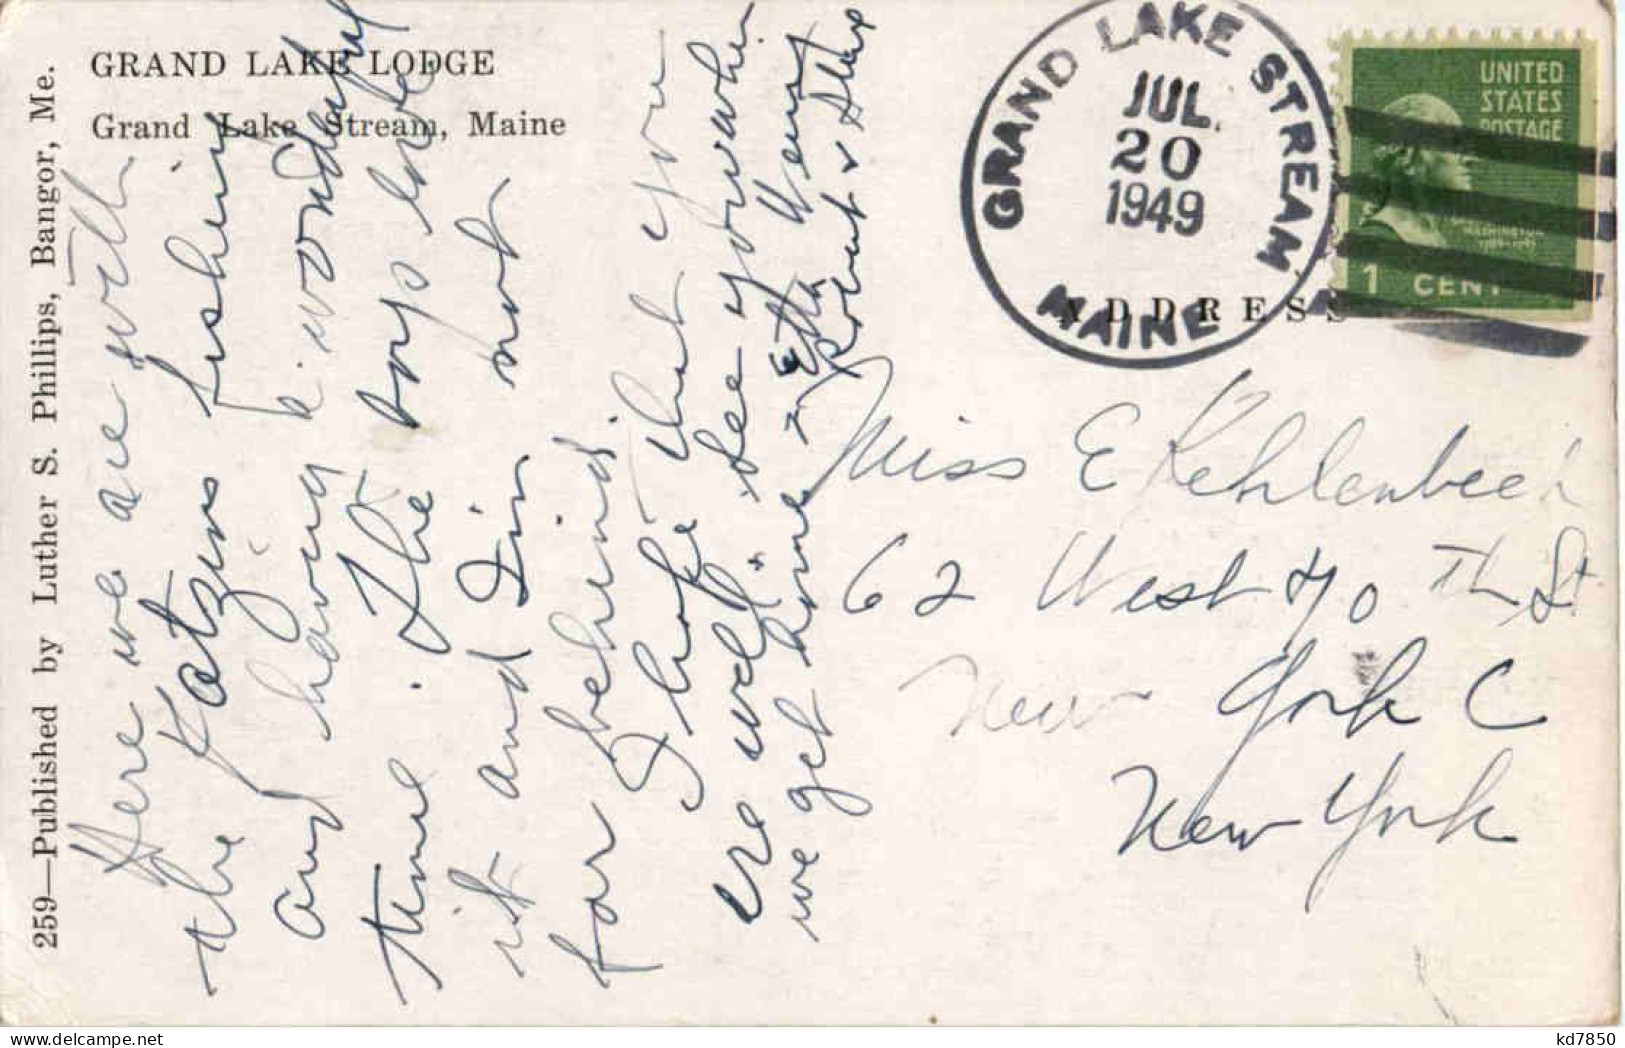 GRAND LAKE LODGE
Grand Lake Stream, Maine
259—Published by Luther S. Phillips, Bangor, Me.
Here we are with
the Katzus fishing
and having a wonderful
time. The boys love
it and I'm not
far behind.
I hope that you
are well. See you when
we get home
Etta Henry
Robert &
GRAND LAKE STREAM
JUL
20
1949
MAINE
UNITED
STATES
POSTAGE
WASHINGTON
1789-1797
1 CENT
ADDRESS
Miss E Kehlenbeck
62 West 70 Th St
New York C
New York
kd7850